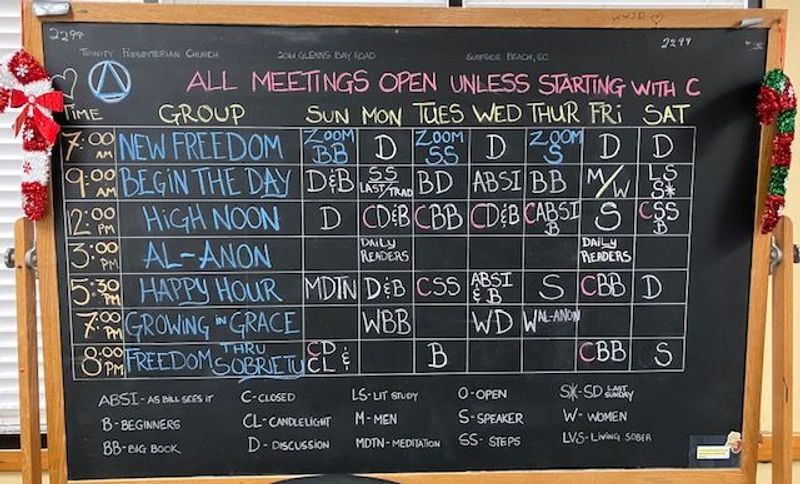 WWJD ♡
2299 2299
TRINITY PRESBYTERIAN CHURCH 2061 GLENNS BAY ROAD SURFSIDE BEACH, SC
ALL MEETINGS OPEN UNLESS STARTING WITH C
TIME GROUP SUN MON TUES WED THUR FRI SAT
7:00 AM NEW FREEDOM ZOOM BB D ZOOM SS D ZOOM S D D
9:00 AM BEGIN THE DAY D&B SS LAST/TRAD BD ABSI BB M/W LS S*
12:00 PM HIGH NOON D CD&B CBB CD&B CABSI B S CSS B
3:00 PM AL-ANON DAILY READERS DAILY READERS
5:30 PM HAPPY HOUR MDTN D&B CSS ABSI & B S CBB D
7:00 PM GROWING IN GRACE WBB WD W AL-ANON
8:00 PM FREEDOM THRU SOBRIETY CD & CL B CBB S
ABSI - AS BILL SEES IT C - CLOSED LS - LIT STUDY O - OPEN S* - SD LAST SUNDAY
B - BEGINNERS CL - CANDLELIGHT M - MEN S - SPEAKER W - WOMEN
BB - BIG BOOK D - DISCUSSION MDTN - MEDITATION SS - STEPS LVS - LIVING SOBER